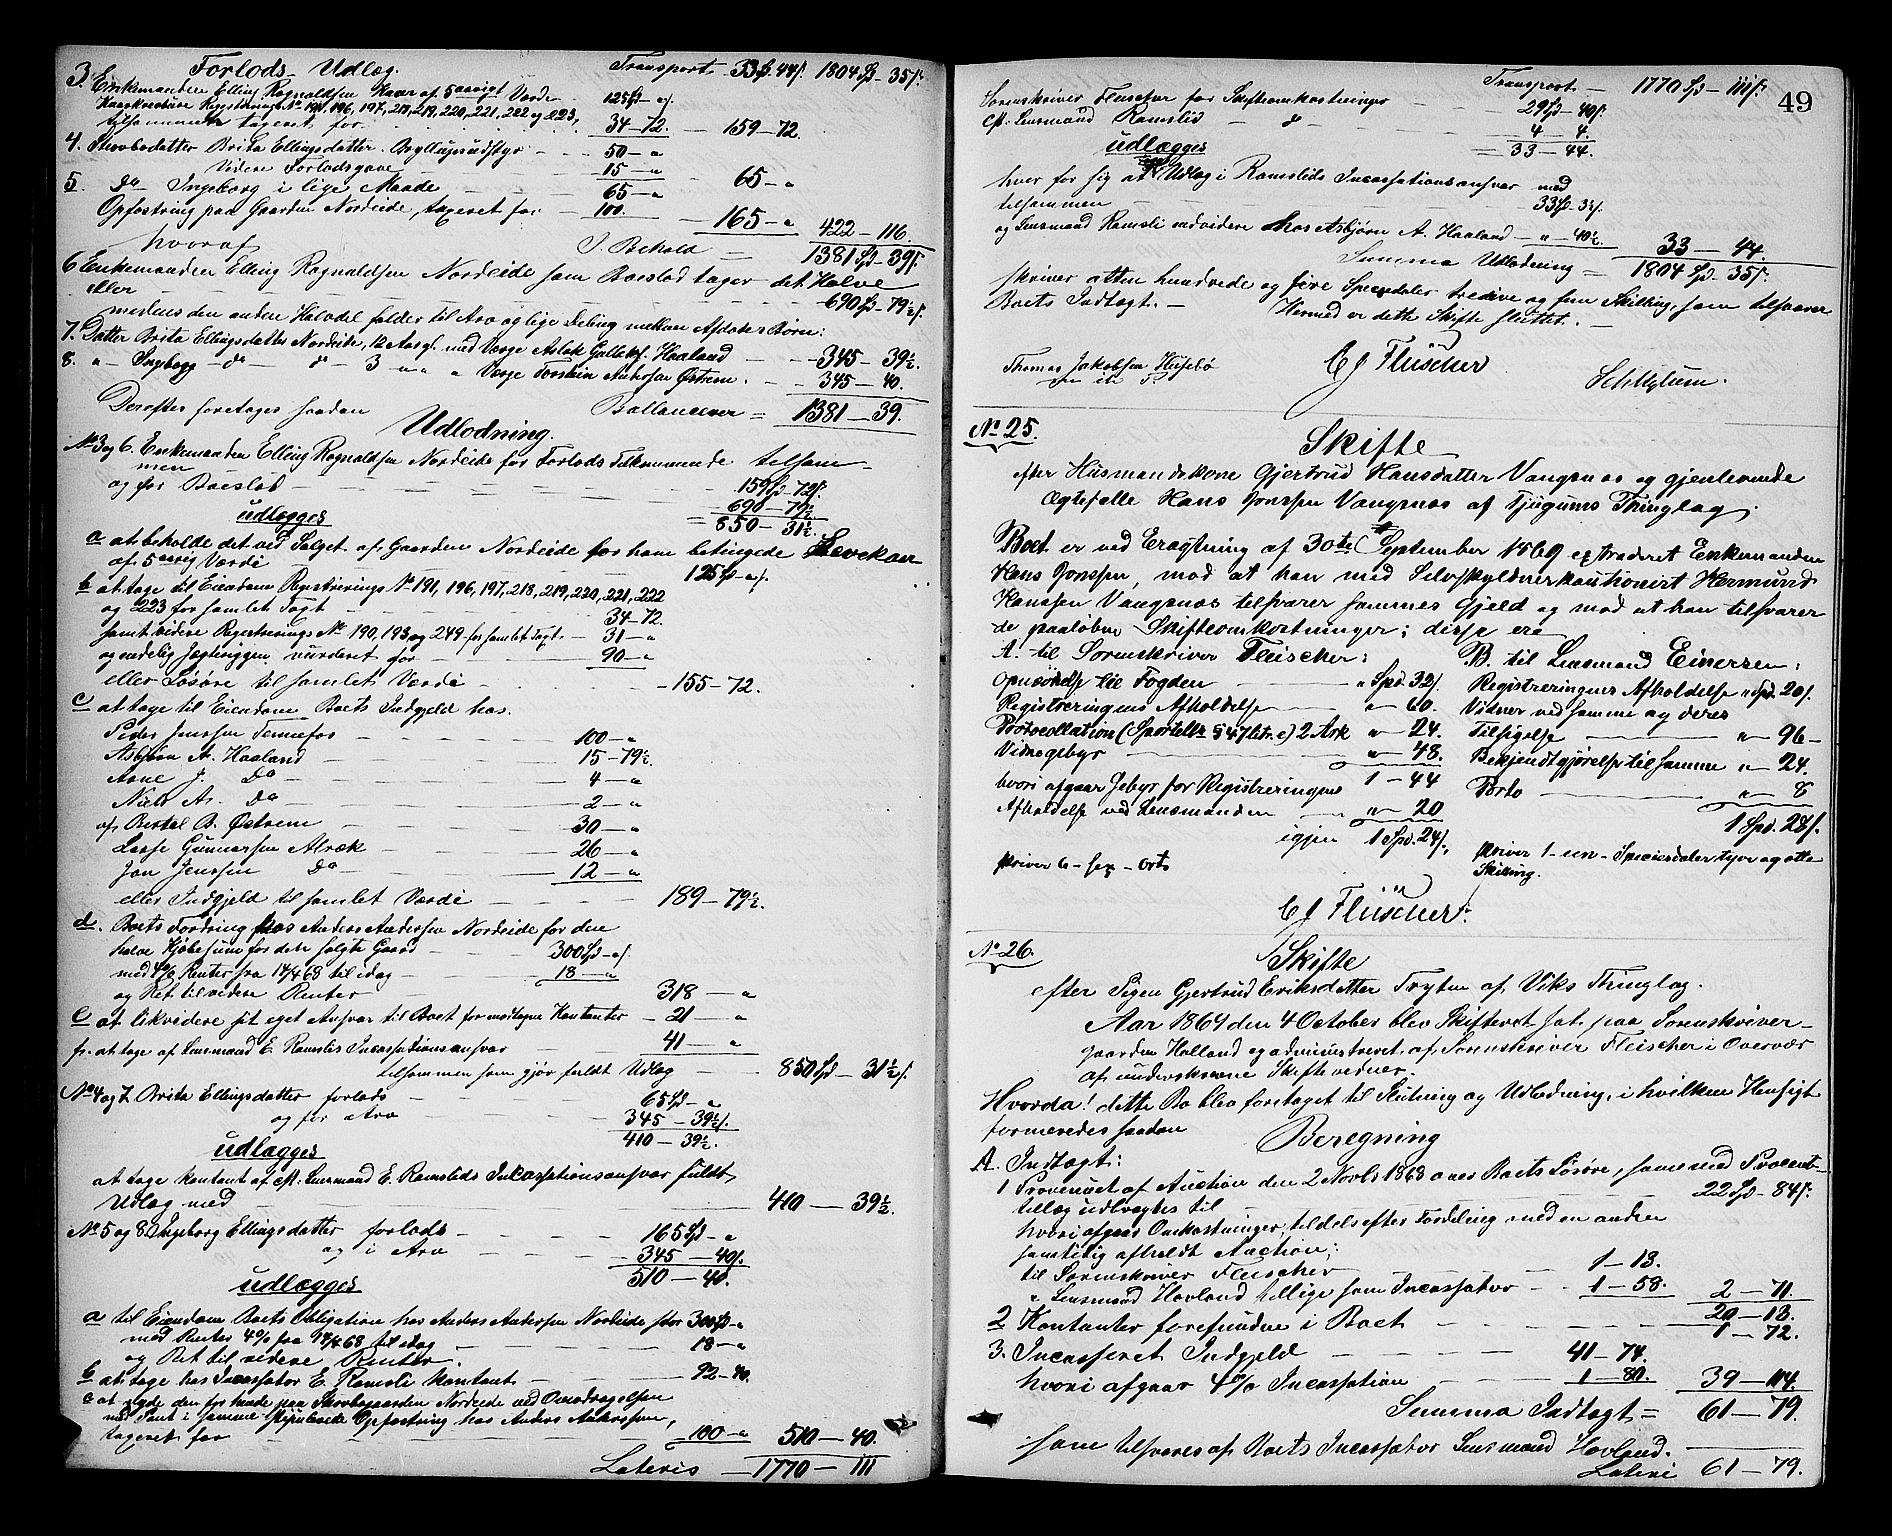 Forlods Udlæg. Transport 33 Sp. 44 s. 1804 Sp - 35 s.
3. Enkemanden Elling Ragnaldsen Kaar af 5aarigt Værdi 125 Sp - " s.
Registrerings No 191, 196, 197, 218, 219, 220, 221, 222 og 223,
tilsammen taxeret for 34 - 72. - 159 - 72.
4. Skrbodatter Brita Ellingsdatter Bryllupsudstyr 50 - "
Videre Forlodsgave 15 - "
65 - " 65 - "
5. Do Ingeborg i lige Maade
Opfostring paa Gaarden Nordeide, taxeret for 100.
165 - " 422 - 116.
hvoraf I. Behold 1381 Sp - 39 s.
6 Enkemanden Elling Ragnaldsen Nordeide som Boeslod tager det Halve
eller 690 Sp - 79½ s.
medens den anden Halvdel falder til Arv og lige Deling mellem Afdødes Børn:
7. Datter Brita Ellingsdatter Nordeide, 12 Aar gl. med Værge Aslak Haaland 345 - 39½.
8. " Ingeborg do do 3 " " " Værge Torstein Andersen Østrem 345 - 40.
Derefter foretages saadan Ballancerer = 1381 - 39.
Udlodning.
No 3 og 6. Enkemanden Elling Ragnaldsen Nordeide for Forlods Tilkommende tilsam-
men 159 Sp - 72 s.
og for Boeslod 690 - 79½
= 850 - 31½
udlægges
a at beholde det ved Salget af Gaarden Nordeide for ham betingede Levekaar
af 5aarig Værdi 125 Sp - " s.
b at tage til Eiendom Registrerings No 191, 196, 197, 218, 219, 220, 221, 222
og 223 for samlet Taxt 34 - 72.
samt videre Registrerings No 190, 193 og 249 for samlet Taxt 31 - "
og endelig Jægtriggen vurderet for 90 - "
eller Løsøre til samlet Værdi - 155 - 72.
c at tage til Eiendom Boets Indgjeld hos.
Peder Jenssen Tennefos 100 - "
Asbjørn A. Haaland 15 - 79½.
Arne J. Do 4 - "
Niels As. Do 2 - "
af Bertel B. Østrem 30 - "
Lasse Gunnarsen Alræk 26 - "
Jon Jenssen Do 12 - "
eller Indgjeld til samlet Værdi 189 - 79½.
d. Boets Fordring hos Anders Andersen Nordeide for den
halve Kjøbesum for den solgte Gaard 300 Sp - " s.
med 4% Renter fra 14/4 68 til idag 18 - "
og Ret til videre Renter 318 - "
e at likvidere sit eget Ansvar til Boet for modtagne Kontanter 21 - "
f. at tage af Lensmand E. Ramslis Incassationsansvar 41 - "
tilsammen som gjør fuldt Udlæg 850 Sp - 31½ s.
No 4 og 7 Brita Ellingsdatter forlods 65 Sp - "
og for Arv 345 - 39½ s.
410 - 39½
udlægges
at tage kontant af cst. Lensmand E. Ramslids Inkassationsansvar fuldt
Udlæg med 410 - 39½.
No 5 og 8. Ingeborg Ellingsdatter forlods 165 Sp - "
og i Arv 345 - 40 s.
510 - 40.
udlægges
a til Eiendom Boets Obligation hos Anders Andersen Nordeide stor 300 Sp - "
med Renter 4% fra 14/4 68 til idag 18 - "
og Ret til videre Renter.
b at tage hos Incassator E. Ramsli kontant 92 - 40.
c at nyde den for hende paa Skrbogaarden Nordeide ved Overdragelsen
med Pant i samme stipulerede Opfostring hos Anders Anderssen,
taxeret for 100 - " 510 - 40.
Lateris - 1770 - 111
49
Transport 1770 Sp - 111 s.
Sorenskriver Fleischer for Skifteomkostninger 29 Sp - 40 s.
cst. Lensmand Ramslid do 4 - 4.
udlægges 33 - 44.
hver for sig at Udlæg i Ramslids Incassationsansvar med
tilsammen 33 Sp - 3½ s.
og Lensmand Ramsli endvidere hos Asbjørn A. Haaland - " - 40½. 33 - 44.
Summa Udlodning - 1804 Sp - 35 s.
skriver atten hundrede og fire Speciedaler tredive og fem Skilling, som tilsvarer
Boets Indtægt. - Hermed er dette Skifte sluttet. -
Thomas Jakobsen Husebø Cf Fleischer
No 25.
Skifte
efter Husmandskone Gjertrud Hansdatter Vangsnæs og gjenlevende
Ægtefælle Hans Jonssen Vangsnæs af Tjugums Thinglag.
Boet er ved Eragtning af 30te September 1869 extraderet Enkemanden
Hans Jonssen, mod at han med Selvskyldnerkautionist Hermund
Hanssen Vangsnæs tilsvarer sammes Gjeld og mod at han tilsvarer
de paaløbne Skifteomkostninger; disse ere
A. til Sorenskriver Fleischer:
Opnsende til Fogden " Spd. 32 s.
Registreringens Afholdelse " - 60.
Protocollation (Sportellv § 47 litr. c) 2 Ark " - 24.
Vidnegebyr " - 48.
1 - 44
hvori afgaar Gebyr for Registreringens
Afholdelse ved Lensmanden " - 20
igjen 1 Spd. 24 s.
skriver 6 - sex - Ort
B. til Lensmand Einersen:
Registreringens Afholdelse " Spd. 20 s.
Vidner ved samme og deres
Tilsigelse " - 96 -
Bekjendtgjørelse til samme " - 24.
Porto " - 8
1 Spd. 28 s.
skriver 1 - en - Speciesdaler tyve og otte
Skilling.
Cf Fleischer.
No 26.
Skifte
efter Pigen Gjertrud Eriksdatter Tryten af Viks Thinglag.
Aar 1869 den 4 October blev Skifteret sat paa Sorenskriver-
gaarden Holland og administreret af Sorenskriver Fleischer i Overvær
af underskrevne Skiftevidner.
Hvorda! dette Bo blev foretaget til Slutning og Udlodning, i hvilken Hensigt
formeredes saadan
Beregning
A. Indtægt:
1 Provenuet af Auction den 2 Novbr 1868 over Boets Løsøre, som med Procent-
tillæg udbragtes til 22 Sp - 84 s.
hvori afgaar Omkostninger, tildels efter Fordeling med en anden
samtidig afholdt Auction;
til Sorenskriver Fleischer 1 - 13.
" Lensmand Hovland tillige som Incassator 1 - 58. 2 - 71.
20 - 13.
2 Kontanter forefundne i Boet 1 - 72.
3. Incasseret Indgjeld 41 - 74.
hvori afgaar 4% Incassation 1 - 80. 39 - 114.
Summa Indtægt = 61 - 79.
som tilsvares af Boets Incassator Lensmand Hovland.
Lateri 61 - 79.